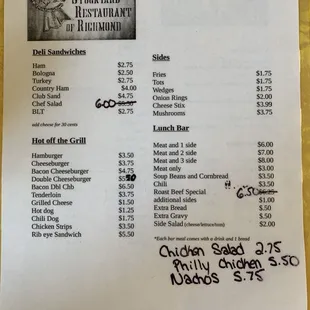 STOCKYARD
RESTAURANT
OF RICHMOND
Deli Sandwiches
Ham $2.75
Bologna $2.50
Turkey $2.75
Country Ham $4.00
Club Sand $4.75
Chef Salad 6.00 $5.50
BLT $2.75
add cheese for 30 cents
Hot off the Grill
Hamburger $3.50
Cheeseburger $3.75
Bacon Cheeseburger $4.75
Double Cheeseburger
Bacon Dbl Chb $6.50
Tenderloin $3.75
Grilled Cheese $1.50
Hot dog $1.25
Chili Dog $1.75
Chicken Strips $3.50
Rib eye Sandwich $5.50
Sides
Fries $1.75
Tots $1.75
Wedges $1.75
Onion Rings $2.00
Cheese Stix $3.99
Mushrooms $3.75
Lunch Bar
Meat and 1 side $6.00
Meat and 2 side $7.00
Meat and 3 side $8.00
Meat only $3.00
Soup Beans and Cornbread $3.50
Chili $3.50
Roast Beef Special 6.50 $6.25
additional sides $1.00
Extra Bread $.50
Extra Gravy $.50
Side Salad (cheese/lettuce/tom) $2.00
*Each bar meal comes with a drink and 1 bread
Chicken Salad 2.75
Philly Chicken 5.50
Nachos 5.75